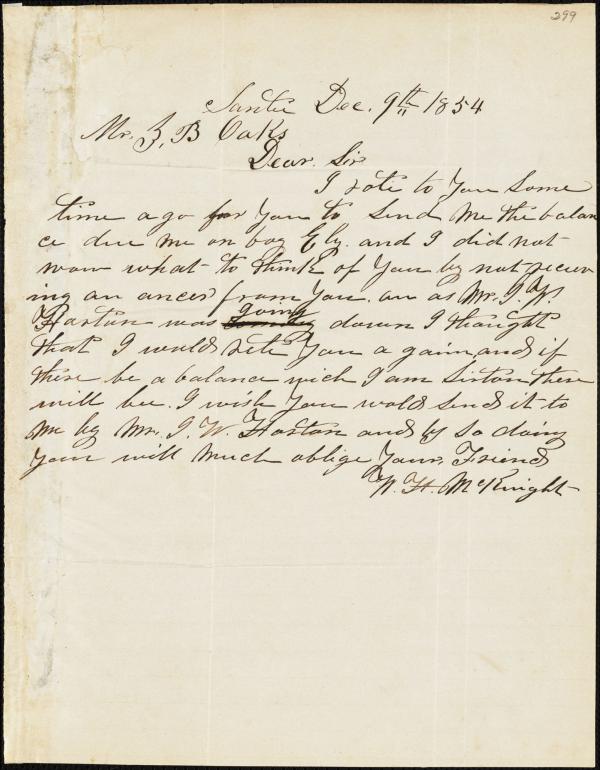 299
Santee Dec. 9th 1854
Mr. Z. B Oaks
Dear. Sir
I rote to You Some
time ago for You to Send Me the balan
ce due me on boy Ely. and I did not
now what to think of You by not reciev
ing an ancer from You. an as Mr. J. W.
going
Harton was down I thought
that I would rite You a gain, and if
there be a balance wich I am Sirton there
will bee. I wish You wold send it to
me by Mr. J. W. Harton and by So doing
Your will Much oblige Your, Friend
W. H. McKnight